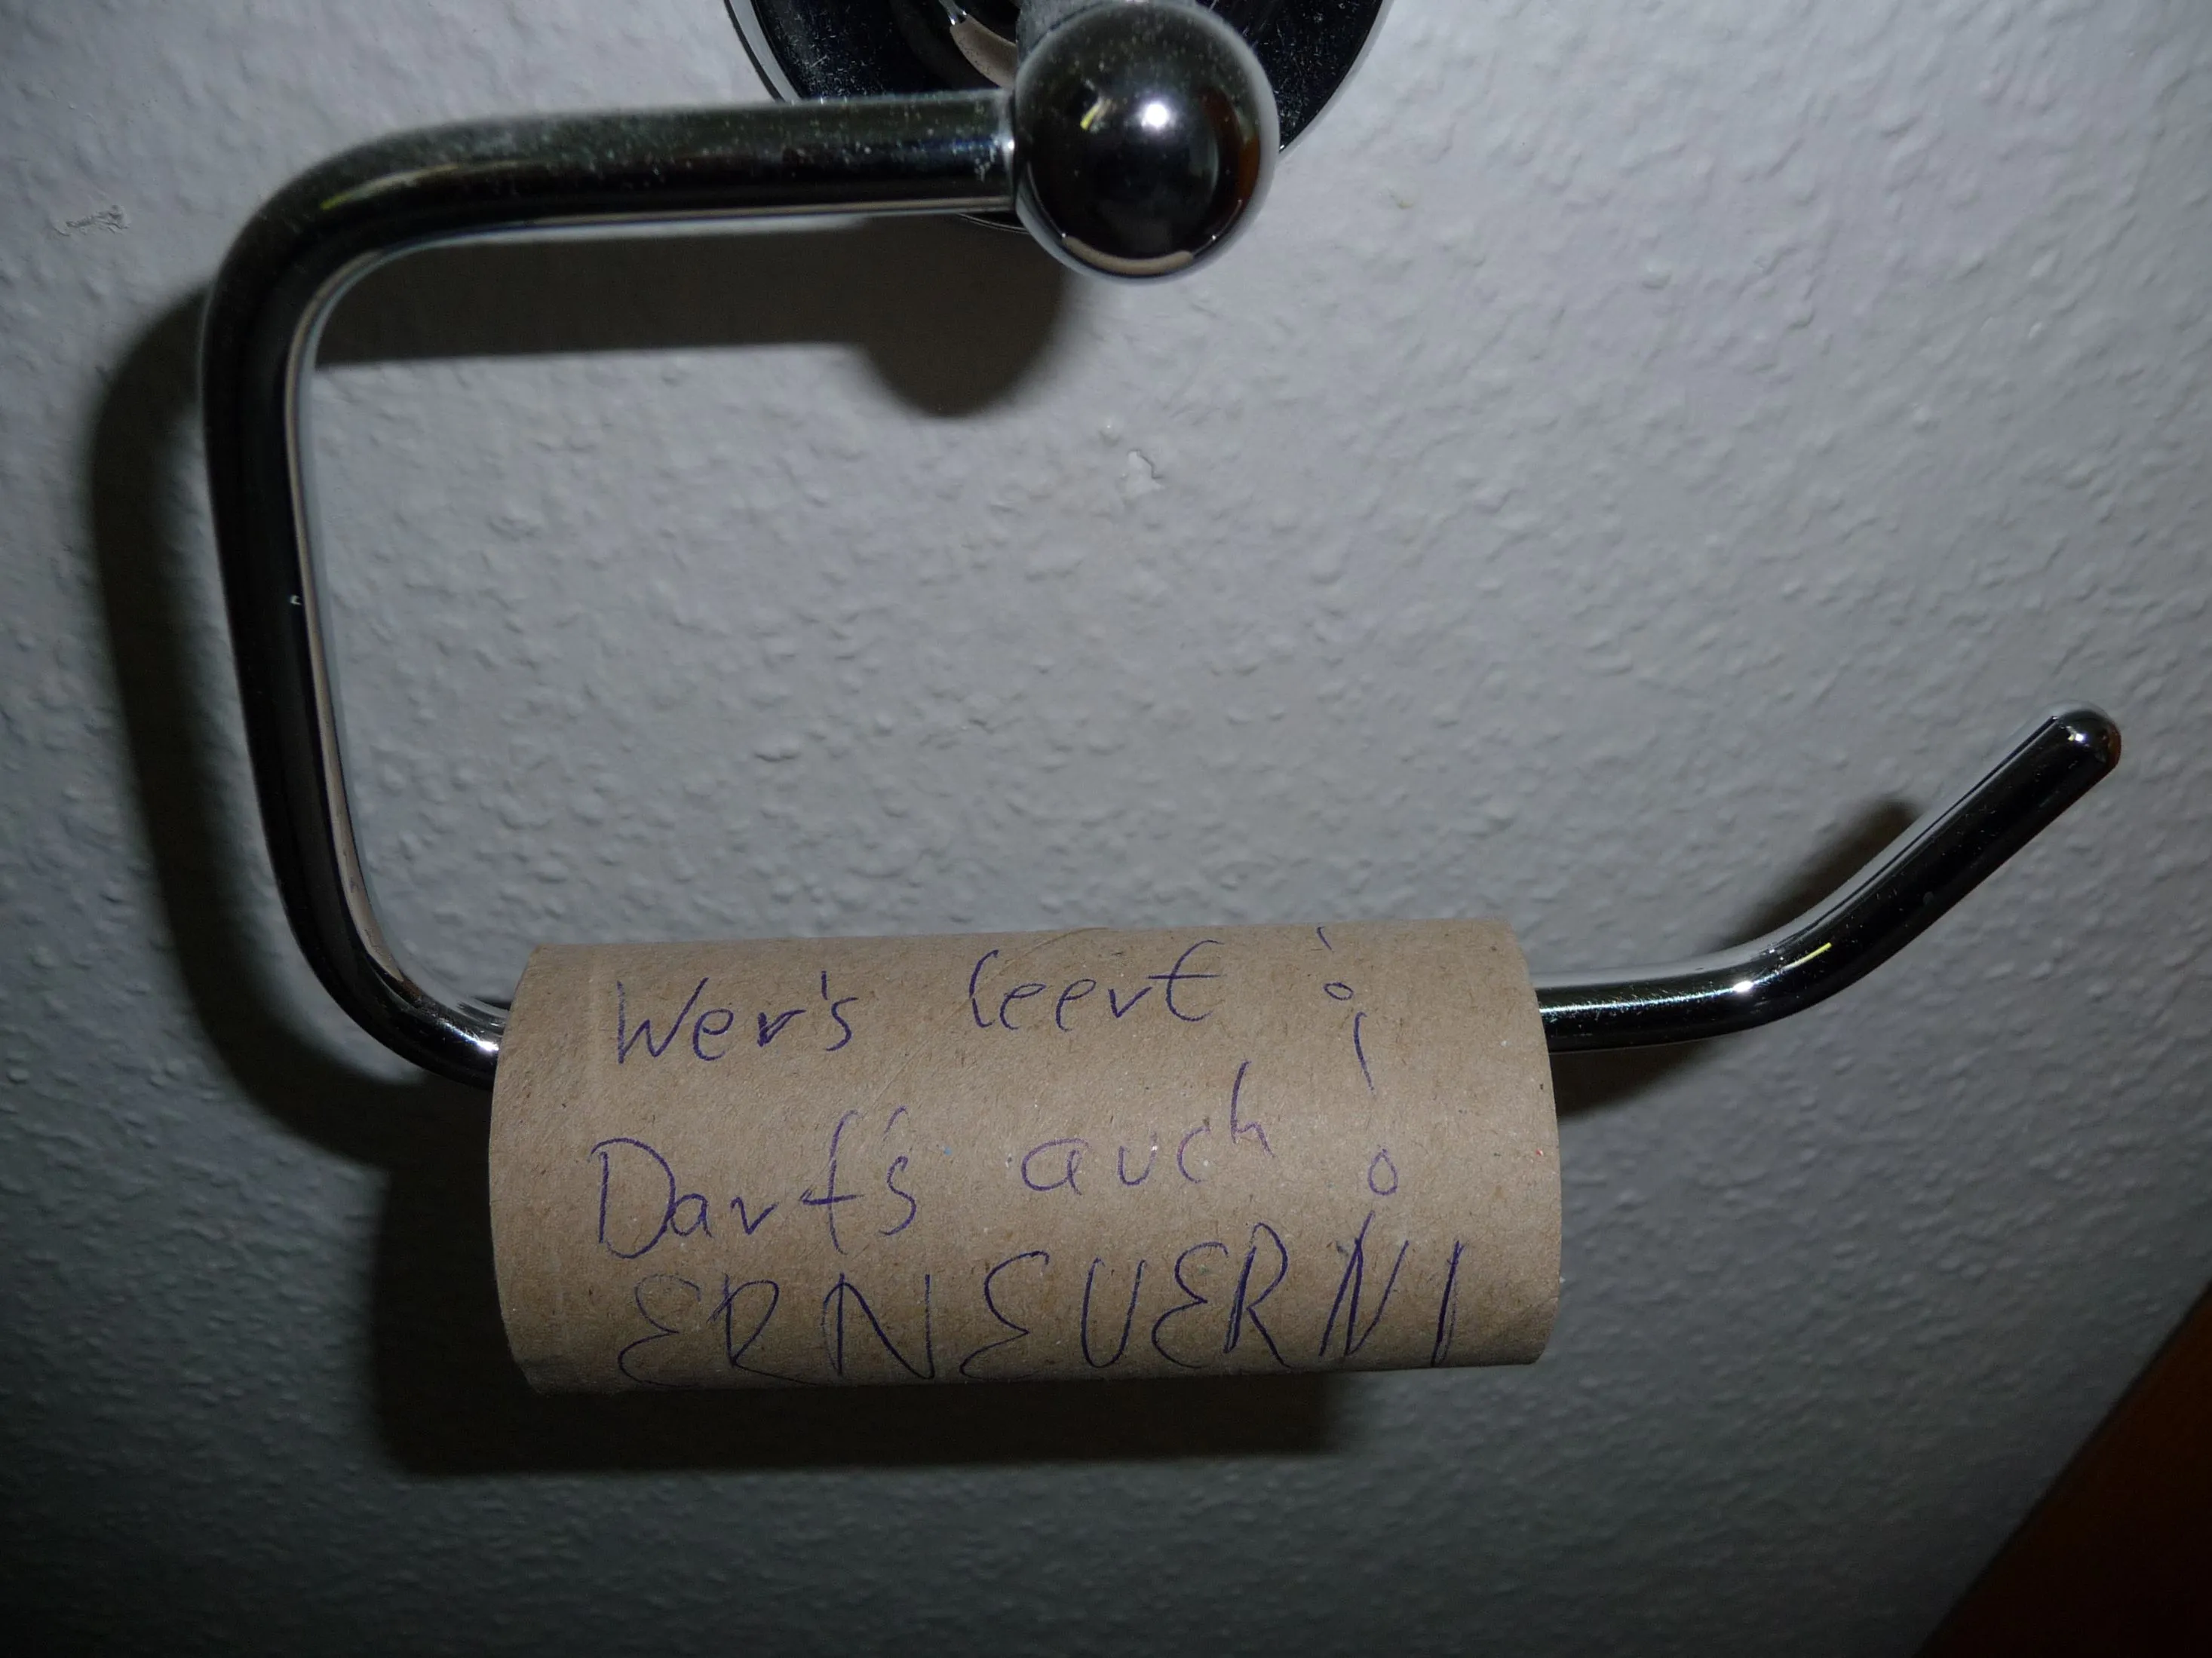 Wer's leert !
Darf's auch !
ERNEUERN!